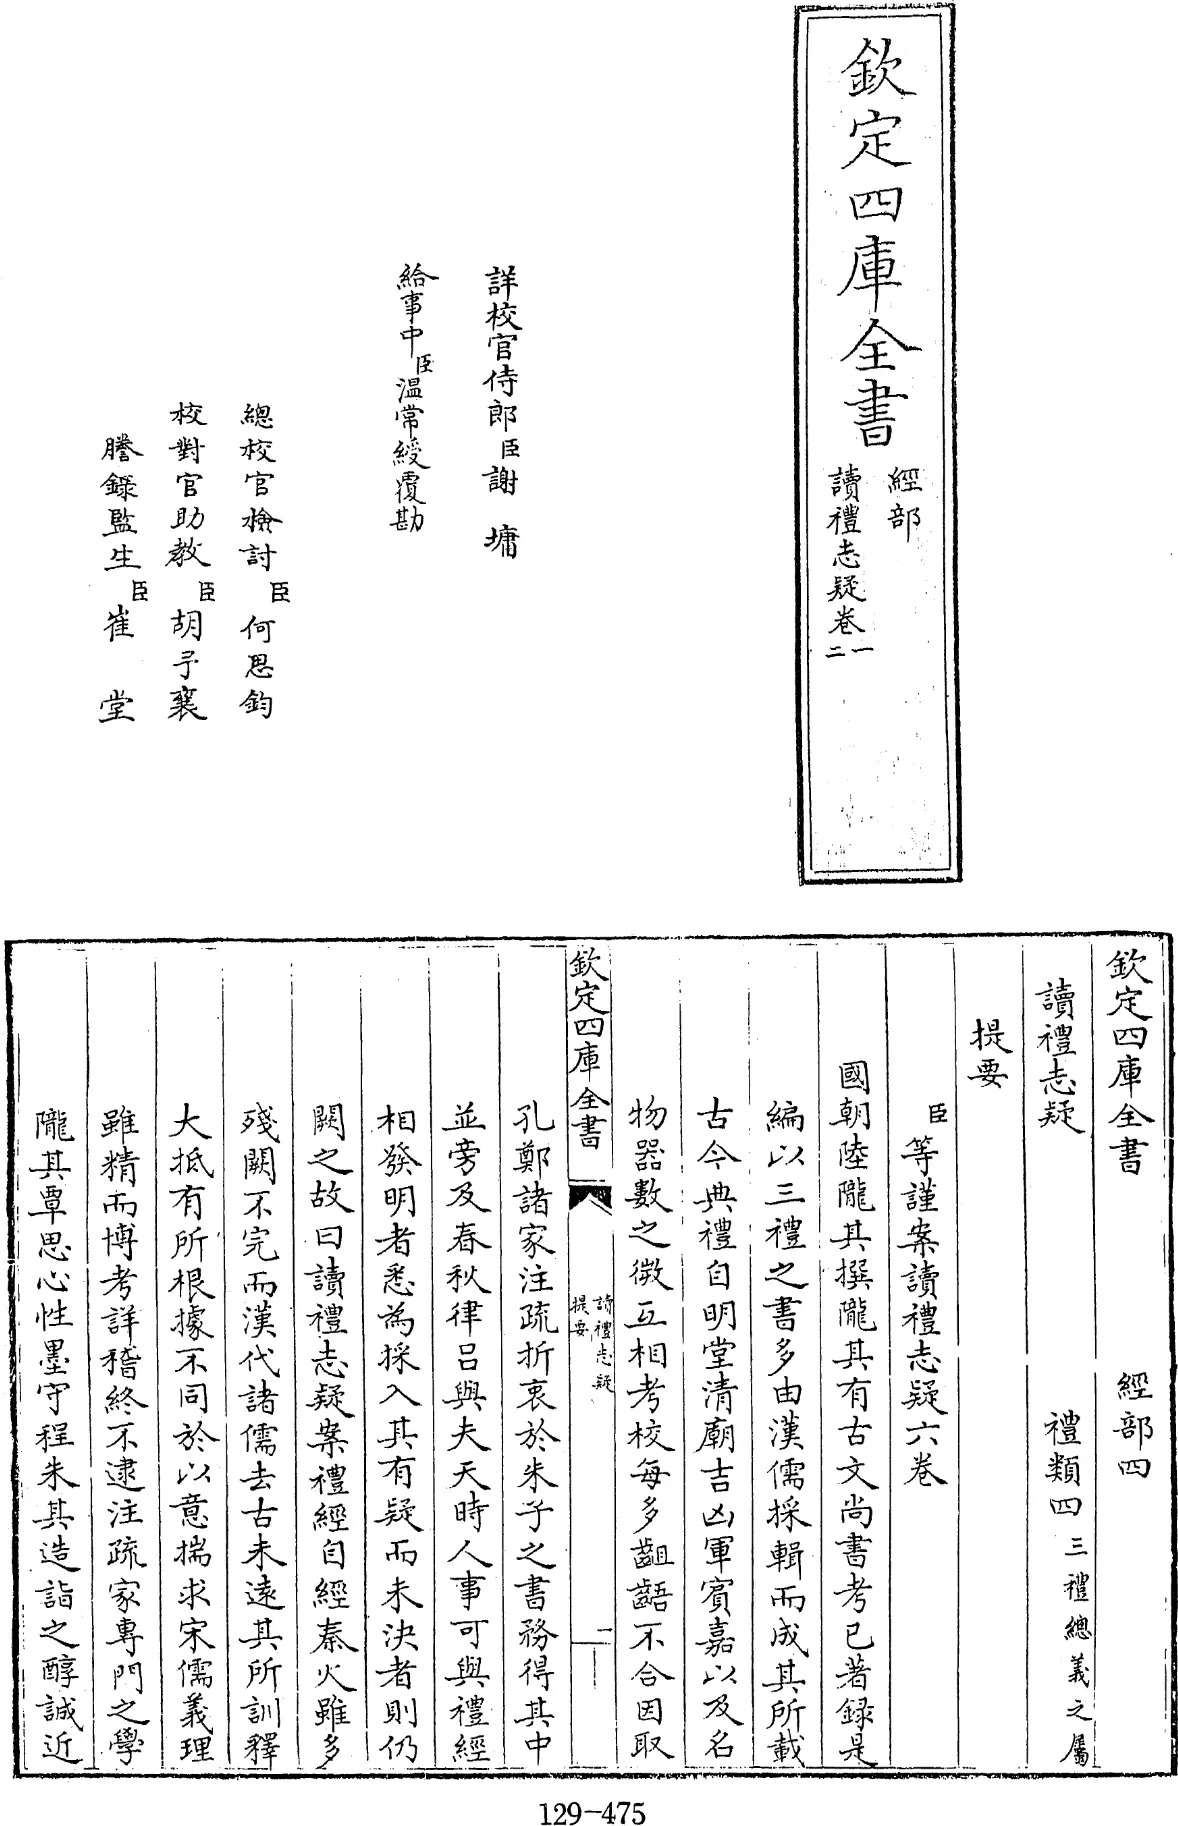 欽定四庫全書
經部
讀禮志疑卷一
二
詳校官侍郎臣謝墉
給事中臣溫常綬覆勘
總校官檢討臣何思鈞
校對官助教臣胡予襄
謄錄監生臣崔堂
欽定四庫全書 經部四
讀禮志疑 禮類四 三禮總義之屬
提要
臣等謹案讀禮志疑六卷
國朝陸隴其撰隴其有古文尚書考已著録是
編以三禮之書多由漢儒採輯而成其所載
古今典禮自明堂清廟吉凶軍賓嘉以及名
物器數之微互相考校每多齟齬不合因取
欽定四庫全書
讀禮志疑
提要
一
孔鄭諸家注疏折衷於朱子之書務得其中
並旁及春秋律呂與夫天時人事可與禮經
相發明者悉為採入其有疑而未決者則仍
闕之故曰讀禮志疑案禮經自經秦火雖多
殘闕不完而漢代諸儒去古未遠其所訓釋
大抵有所根據不同於以意揣求宋儒義理
雖精而博考詳稽終不逮注疏家專門之學
隴其覃思心性墨守程朱其造詣之醇誠近
129-475